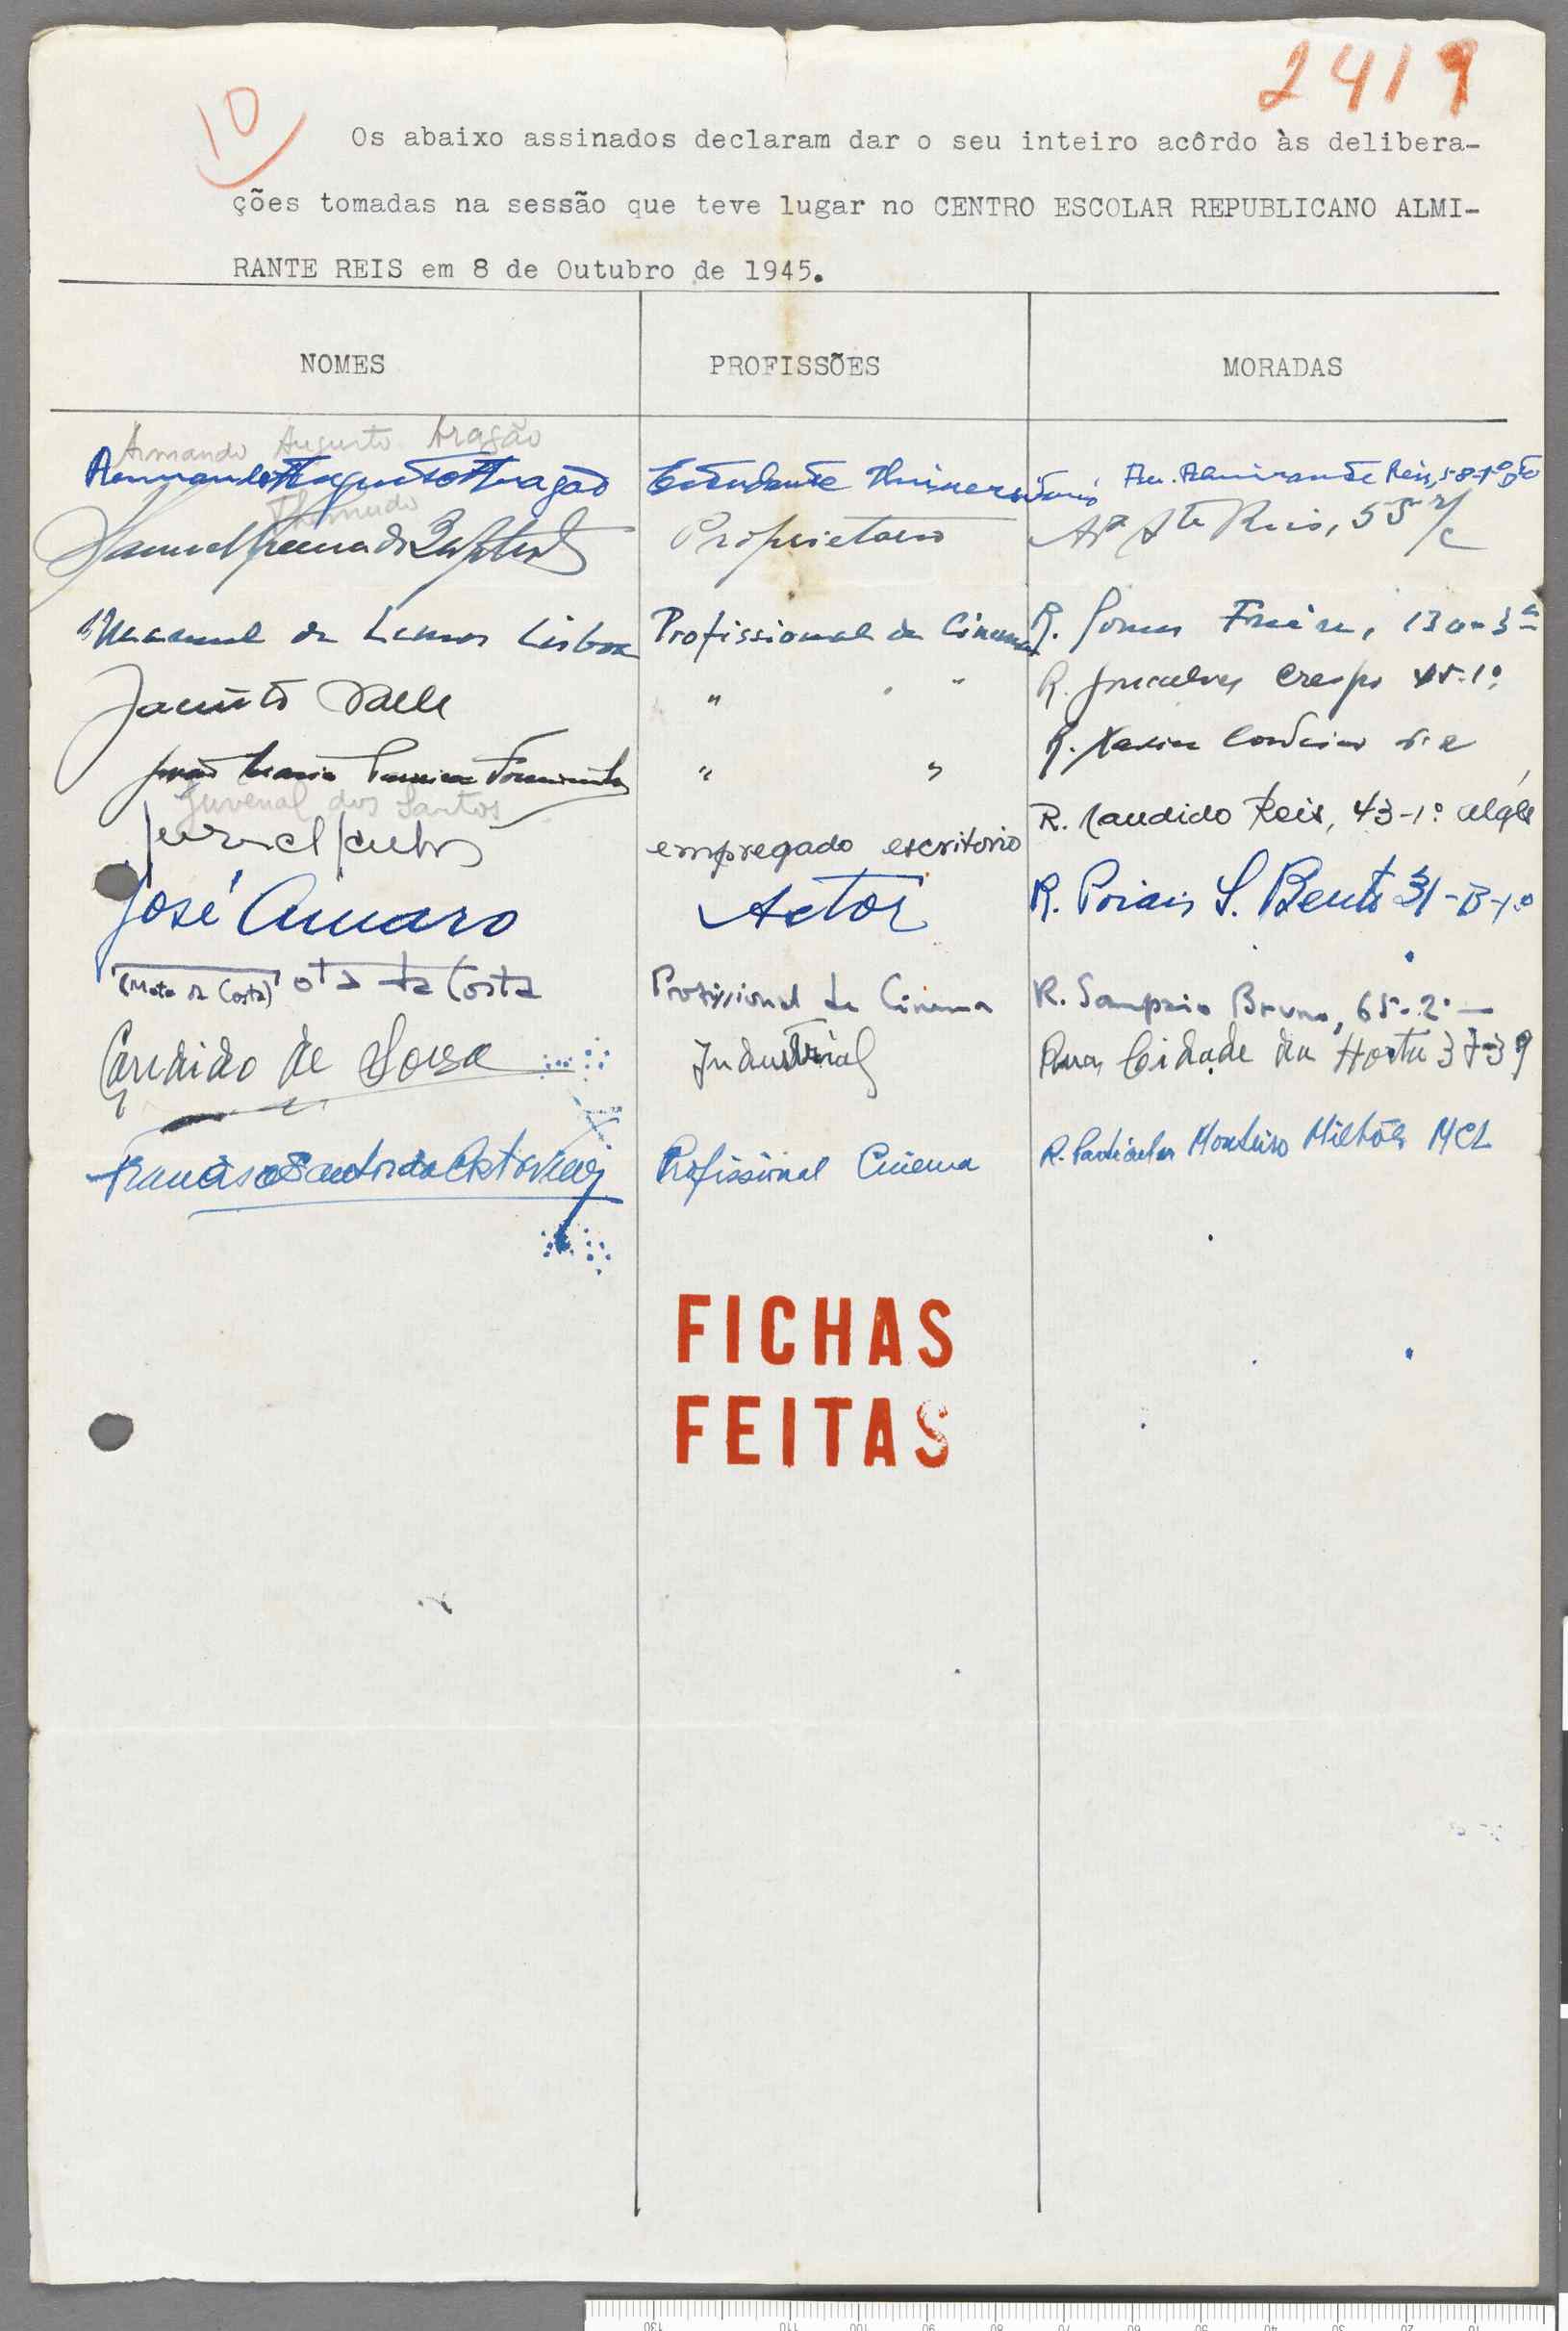 2419
10
Os abaixo assinados declaram dar o seu inteiro acôrdo às delibera-
ções tomadas na sessão que teve lugar no CENTRO ESCOLAR REPUBLICANO ALMI-
RANTE REIS em 8 de Outubro de 1945.
NOMES PROFISSÕES MORADAS
Armando Augusto Aragão
Armando Augusto Aragão Estudante Universitário Av. Almirante Reis, 58-1º Dto
Proprietario Reis, 55 r/c
Manuel de Lemos Lisboa Profissional de Cinema R. Gomes Freire, 130-3º
Jacinto Valle " " R. Gonçalves Crespo 45-1º
João Maria " " R. Xavier Cordeiro
Juvenal dos Santos
Juvenal Santos empregado escritorio R. Candido Reis, 43-1º Algés
José Amaro Actor R. Poiais S. Bento 31-B-1º
(Mota da Costa) ota da Costa Profissional de Cinema R. Sampaio Bruno, 65-2º
Candido de Sousa Industrial Rua Cidade da Horta 37-39
Francisco Profissional Cinema R. Particular Monteiro Milhões MCL
FICHAS
FEITAS
130 110 100 90 80 70 60 50 40 30 20 10